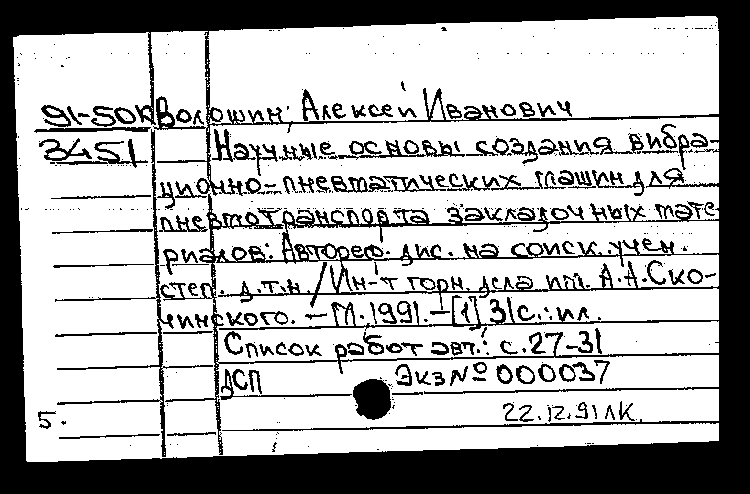 91-50К Волошин, Алексей Иванович
3451 Научные основы создания вибра-
ционно-пневматических машин для
пневмотранспорта закладочных мате-
риалов: Автореф. дис. на соиск. учен.
степ. д.т.н. / Ин-т горн. дела им. А.А.Ско-
чинского. – М., 1991. – [1], 31 с.: ил.
Список работ авт.: с. 27-31
ДСП Экз № 000037
5. 22.12.91 ЛК.